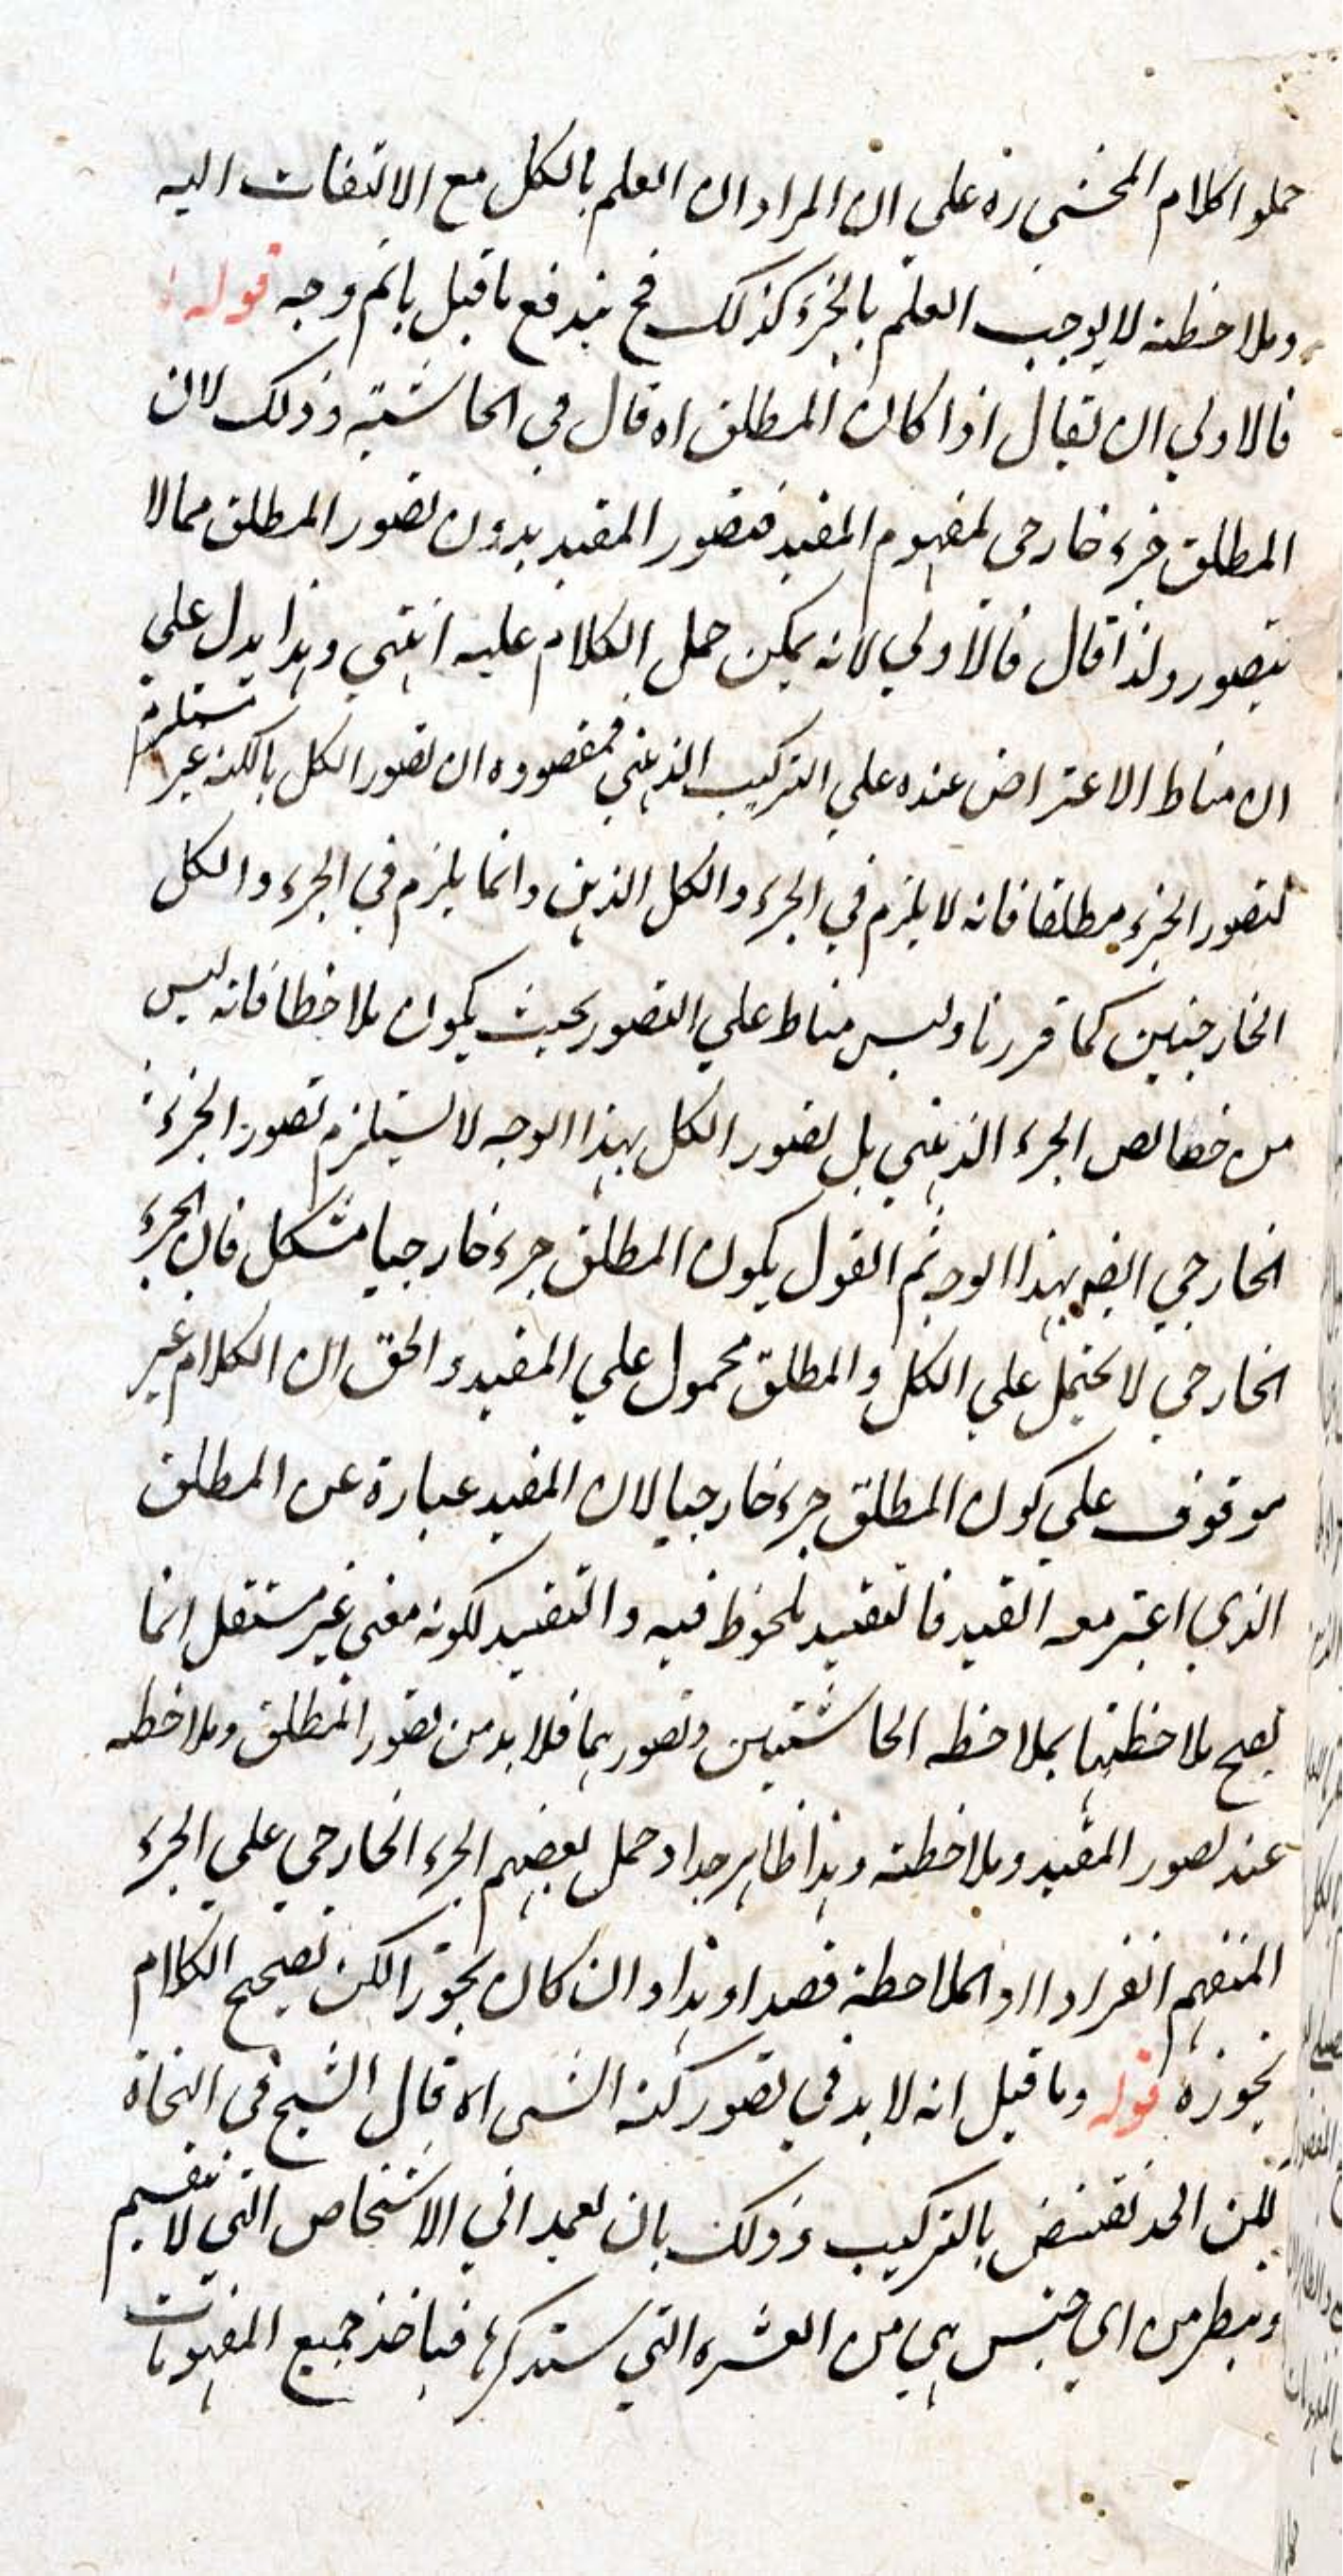 حملوا كلام المحشي ره على ان المراد ان العلم بالكل مع الالتفات اليه
وملاحظته لا يوجب العلم بالجزء كذلك فح يندفع ما قيل باتم وجه قوله
فالاولي ان يقال اذا كان المطلق اه قال في الحاشية وذلك لان
المطلق جزء خارجي لمفهوم المقيد فتصور المقيد بدون تصور المطلق مما لا
يتصور ولذا قال فالاولي لانه يمكن حمل الكلام عليه انتهي وهذا يدل علي
ان مناط الاعتراض عنده علي التركيب الذهني فمقصوده ان تصور الكل بالكنه غير مستلزم
لتصور الجزء مطلقا فانه لا يلزم في الجزء والكل الذهنين وانما يلزم في الجزء والكل
الخارجيين كما قررنا وليس مناط علي التصور بحيث يكون ملاحظا فانه ليس
من خصائص الجزء الذهني بل تصور الكل بهذا الوجه لا يستلزم تصور الجزء
الخارجي ايضه بهذا الوجه ثم القول بكون المطلق جزء خارجيا مشكل فان الجزء
الخارجي لا يحتمل علي الكل والمطلق محمول علي المقيد والحق ان الكلام غير
موقوف علي كون المطلق جزء خارجيا لان المقيد عبارة عن المطلق
الذي اعتبر معه القيد فالتقييد ملحوظ فيه والتقييد لكونه معني غير مستقل انما
يصح ملاحظتها بملاحظه الحاشيتين وتصورهما فلا بد من تصور المطلق وملاحظه
عند تصور المقيد وملاحظته وهذا ظاهر جدا وحمل بعضهم الجزء الخارجي علي الجزء
المنفهم انفرادا او الملاحظة قصدا وهذا وان كان تجوزا لكن تصحيح الكلام
تجوزه قوله وما قيل انه لا بد في تصور كنه الشي اه قال الشيخ في النجاة
لكن الحد يقتنص بالتركيب وذلك بان نعمد الي الاشخاص التي لا تنقسم
وننظر من اي جنس هي من العشره التي سنذكرها فناخذ جميع المقومات